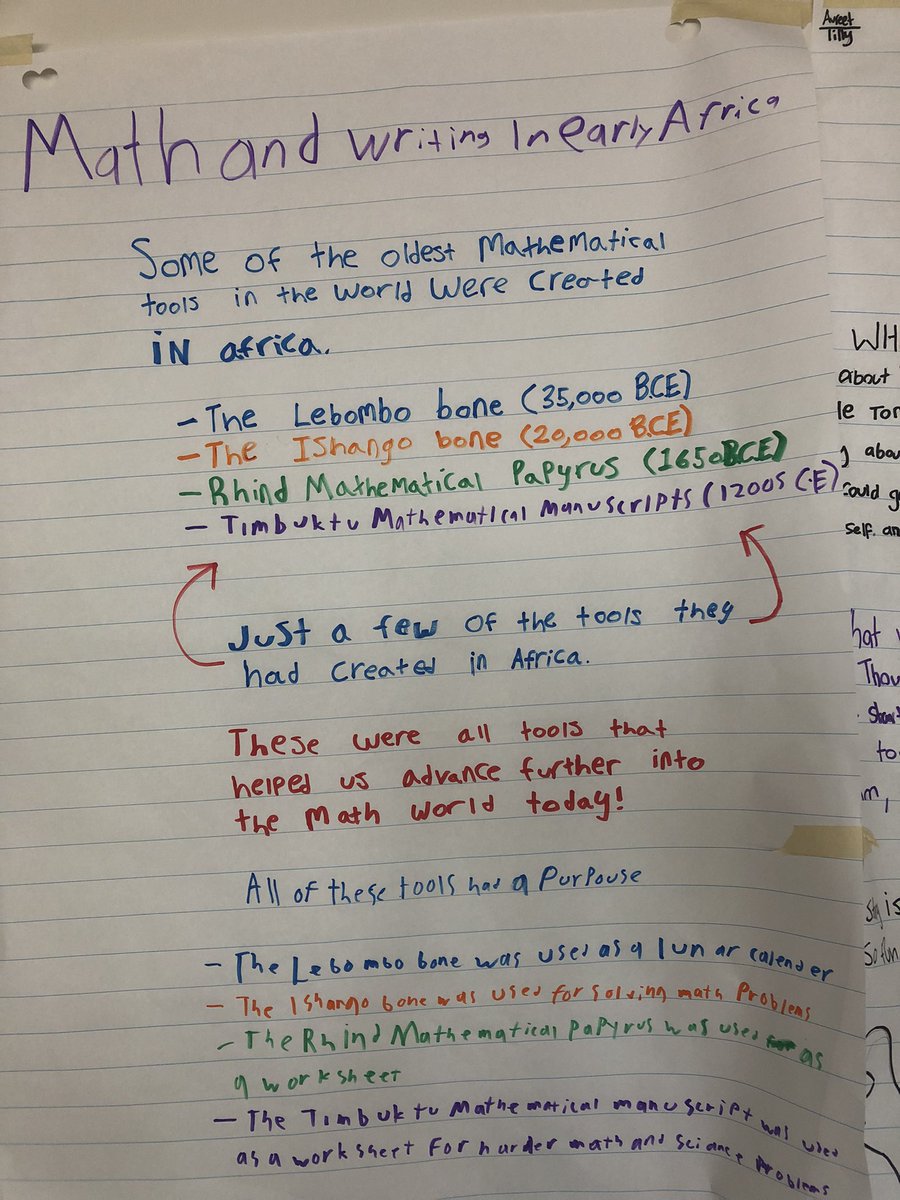 Avreet
Tilly
Math and writing In early Africa
Some of the oldest Mathematical
tools in the World Were Created
iN africa.
- The Lebombo bone (35,000 B.C.E)
- The IShango bone (20,000 B.C.E)
- Rhind Mathematical Papyrus (1650 B.C.E)
- Timbuktu Mathematical Manuscripts (1200s C.E)
Just a few of the tools they
had created in Africa.
These were all tools that
helped us advance further into
the Math world today!
All of these tools had a Purpouse
- The Lebombo bone was used as a lunar calender
- The Ishango bone was used for solving math Problems
- The Rhind Mathematical papyrus was used as
a worksheet
- The Timbuktu Mathematical manuscript was used
as a worksheet For harder math and science Problems
WH
about
le Tor
g abou
could g
self. an
hat
Thou
to